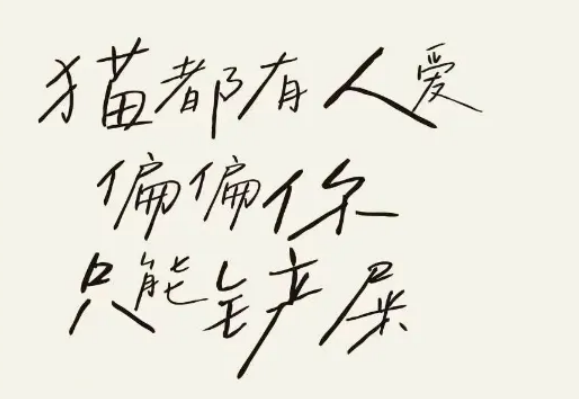 猫都有人爱
偏偏你
只能铲屎